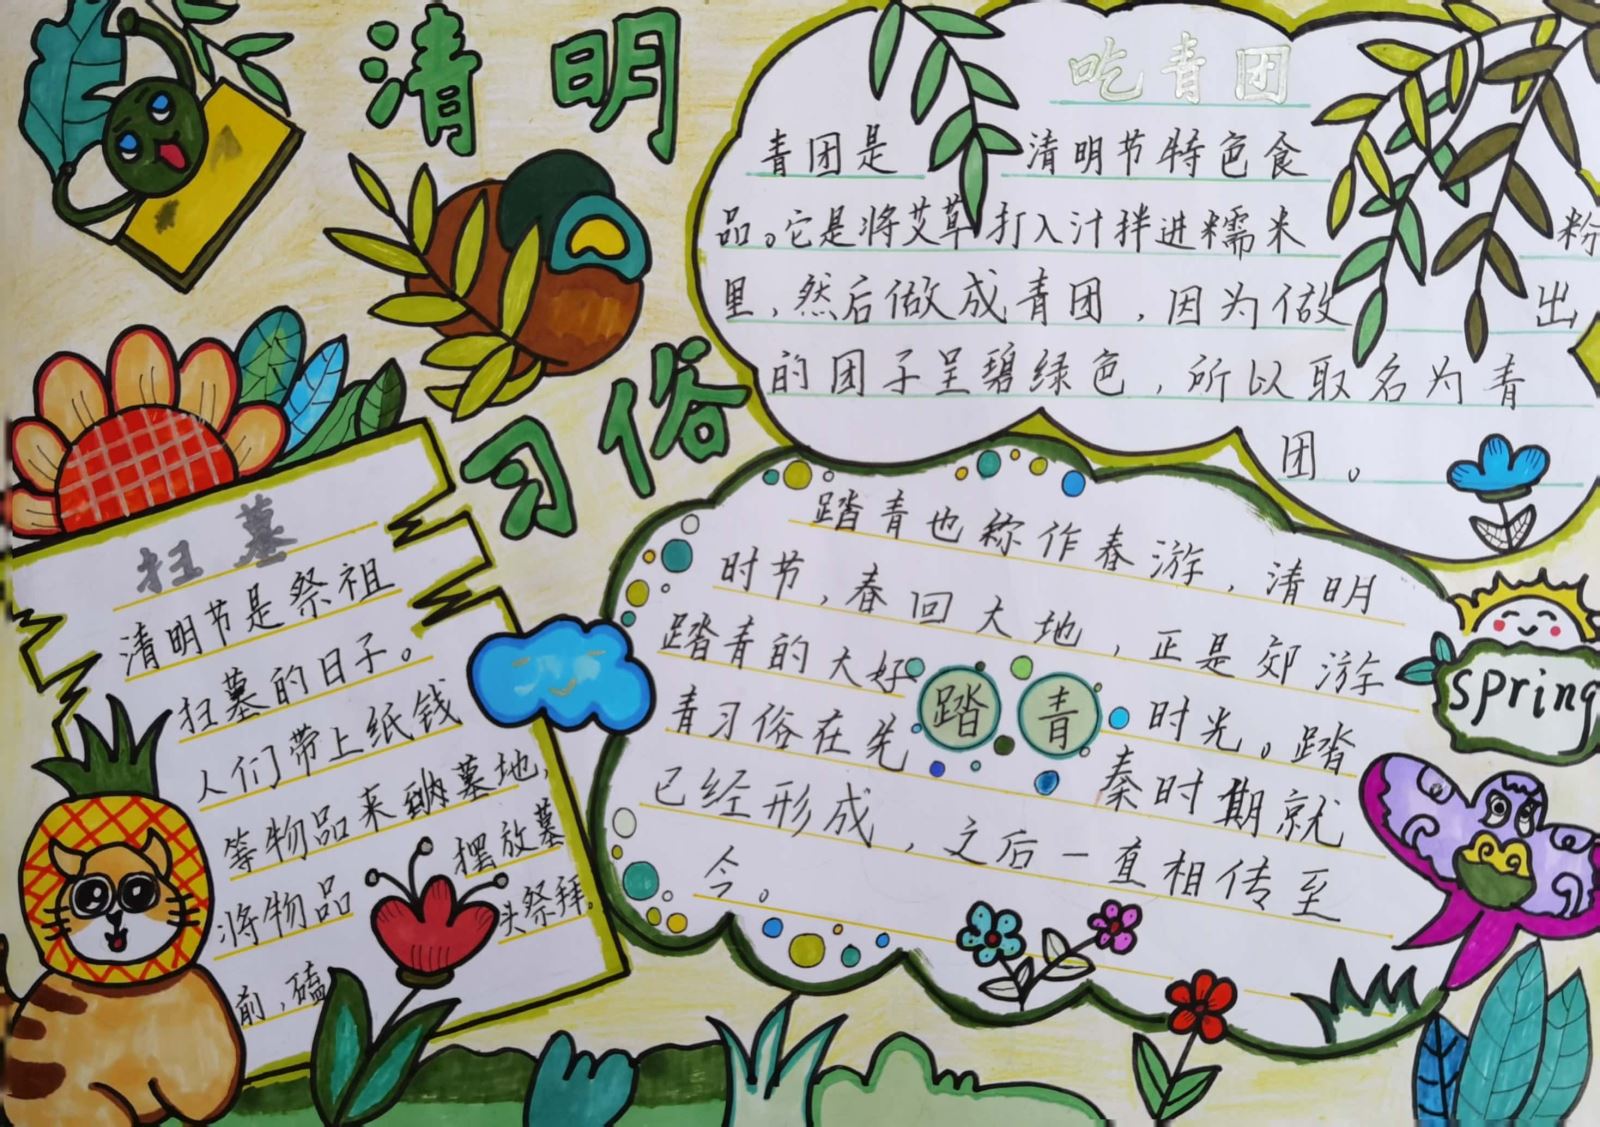 清明
习俗
吃青团
青团是清明节特色食
品。它是将艾草打入汁拌进糯米粉
里，然后做成青团，因为做出
的团子呈碧绿色，所以取名为青
团。
扫墓
清明节是祭祖
扫墓的日子。
人们带上纸钱
等物品来到墓地，
将物品摆放墓
前，磕头祭拜。
踏青
踏青也称作春游，清明
时节，春回大地，正是郊游
踏青的大好时光。踏
青习俗在先秦时期就
已经形成，之后一直相传至
今。
spring